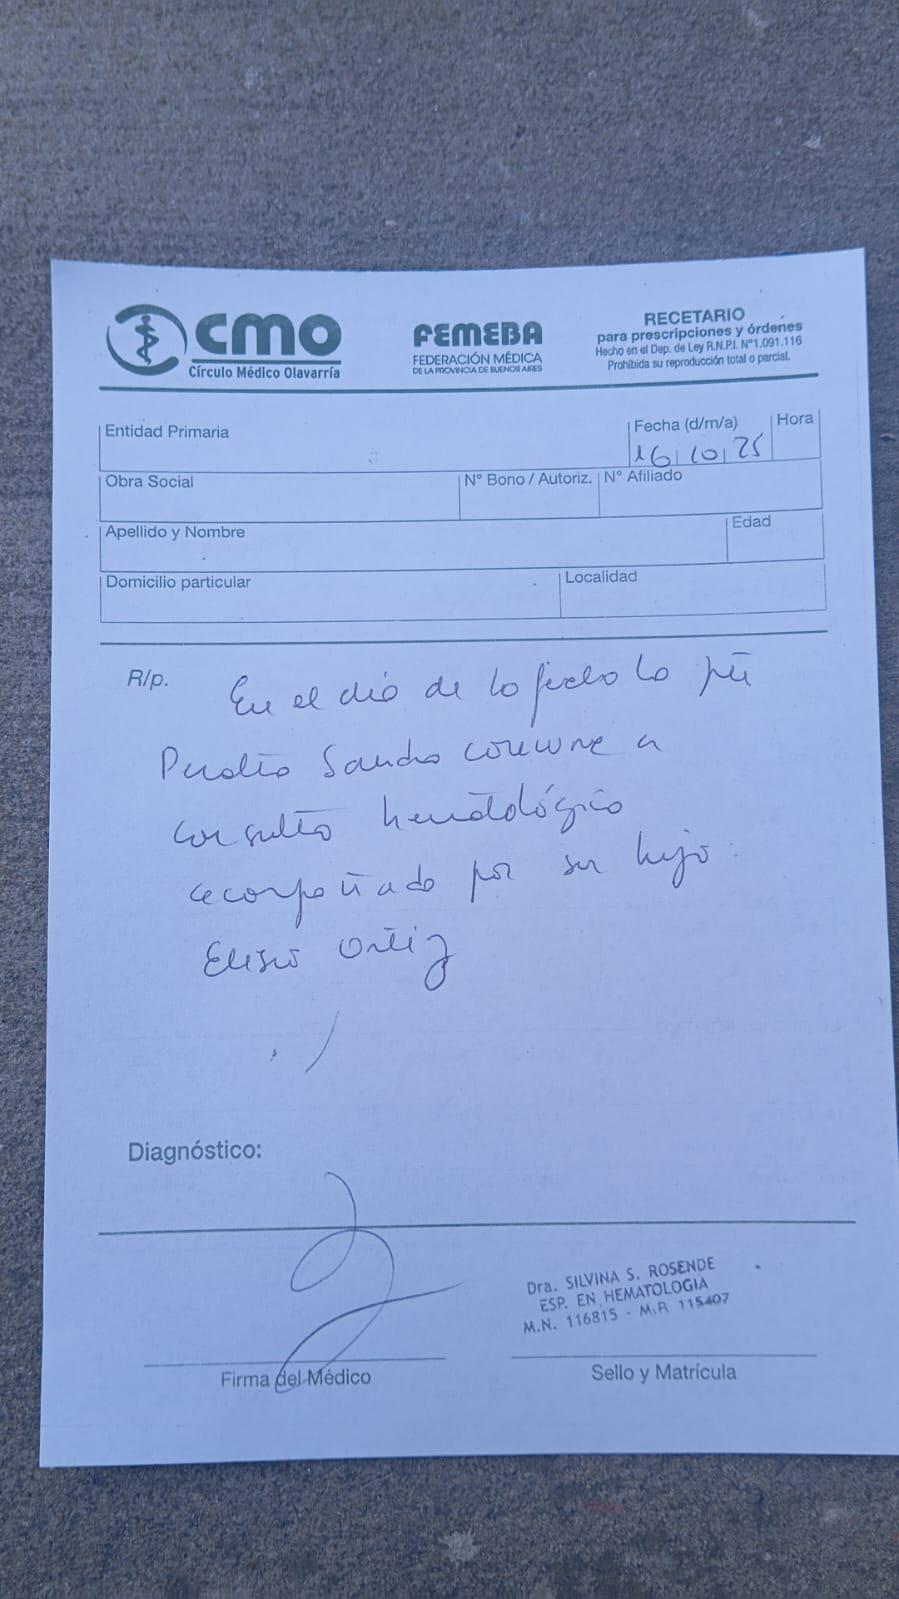 CMO
Círculo Médico Olavarría
FEMEBA
FEDERACIÓN MÉDICA
DE LA PROVINCIA DE BUENOS AIRES
RECETARIO
para prescripciones y órdenes
Hecho en el Dep. de Ley R.N.P.I. N°1.091.116
Prohibida su reproducción total o parcial.
Entidad Primaria
Fecha (d/m/a)
Hora
16 10 25
Obra Social
N° Bono / Autoriz.
N° Afiliado
Apellido y Nombre
Edad
Domicilio particular
Localidad
R/p. En el día de la fecha la
Sandra concurre a
consulta hematológica
acompañada por su hijo
Ortiz
Diagnóstico:
Dra. SILVINA S. ROSENDE
ESP. EN HEMATOLOGIA
M.N. 116815 - M.P. 115407
Firma del Médico
Sello y Matrícula